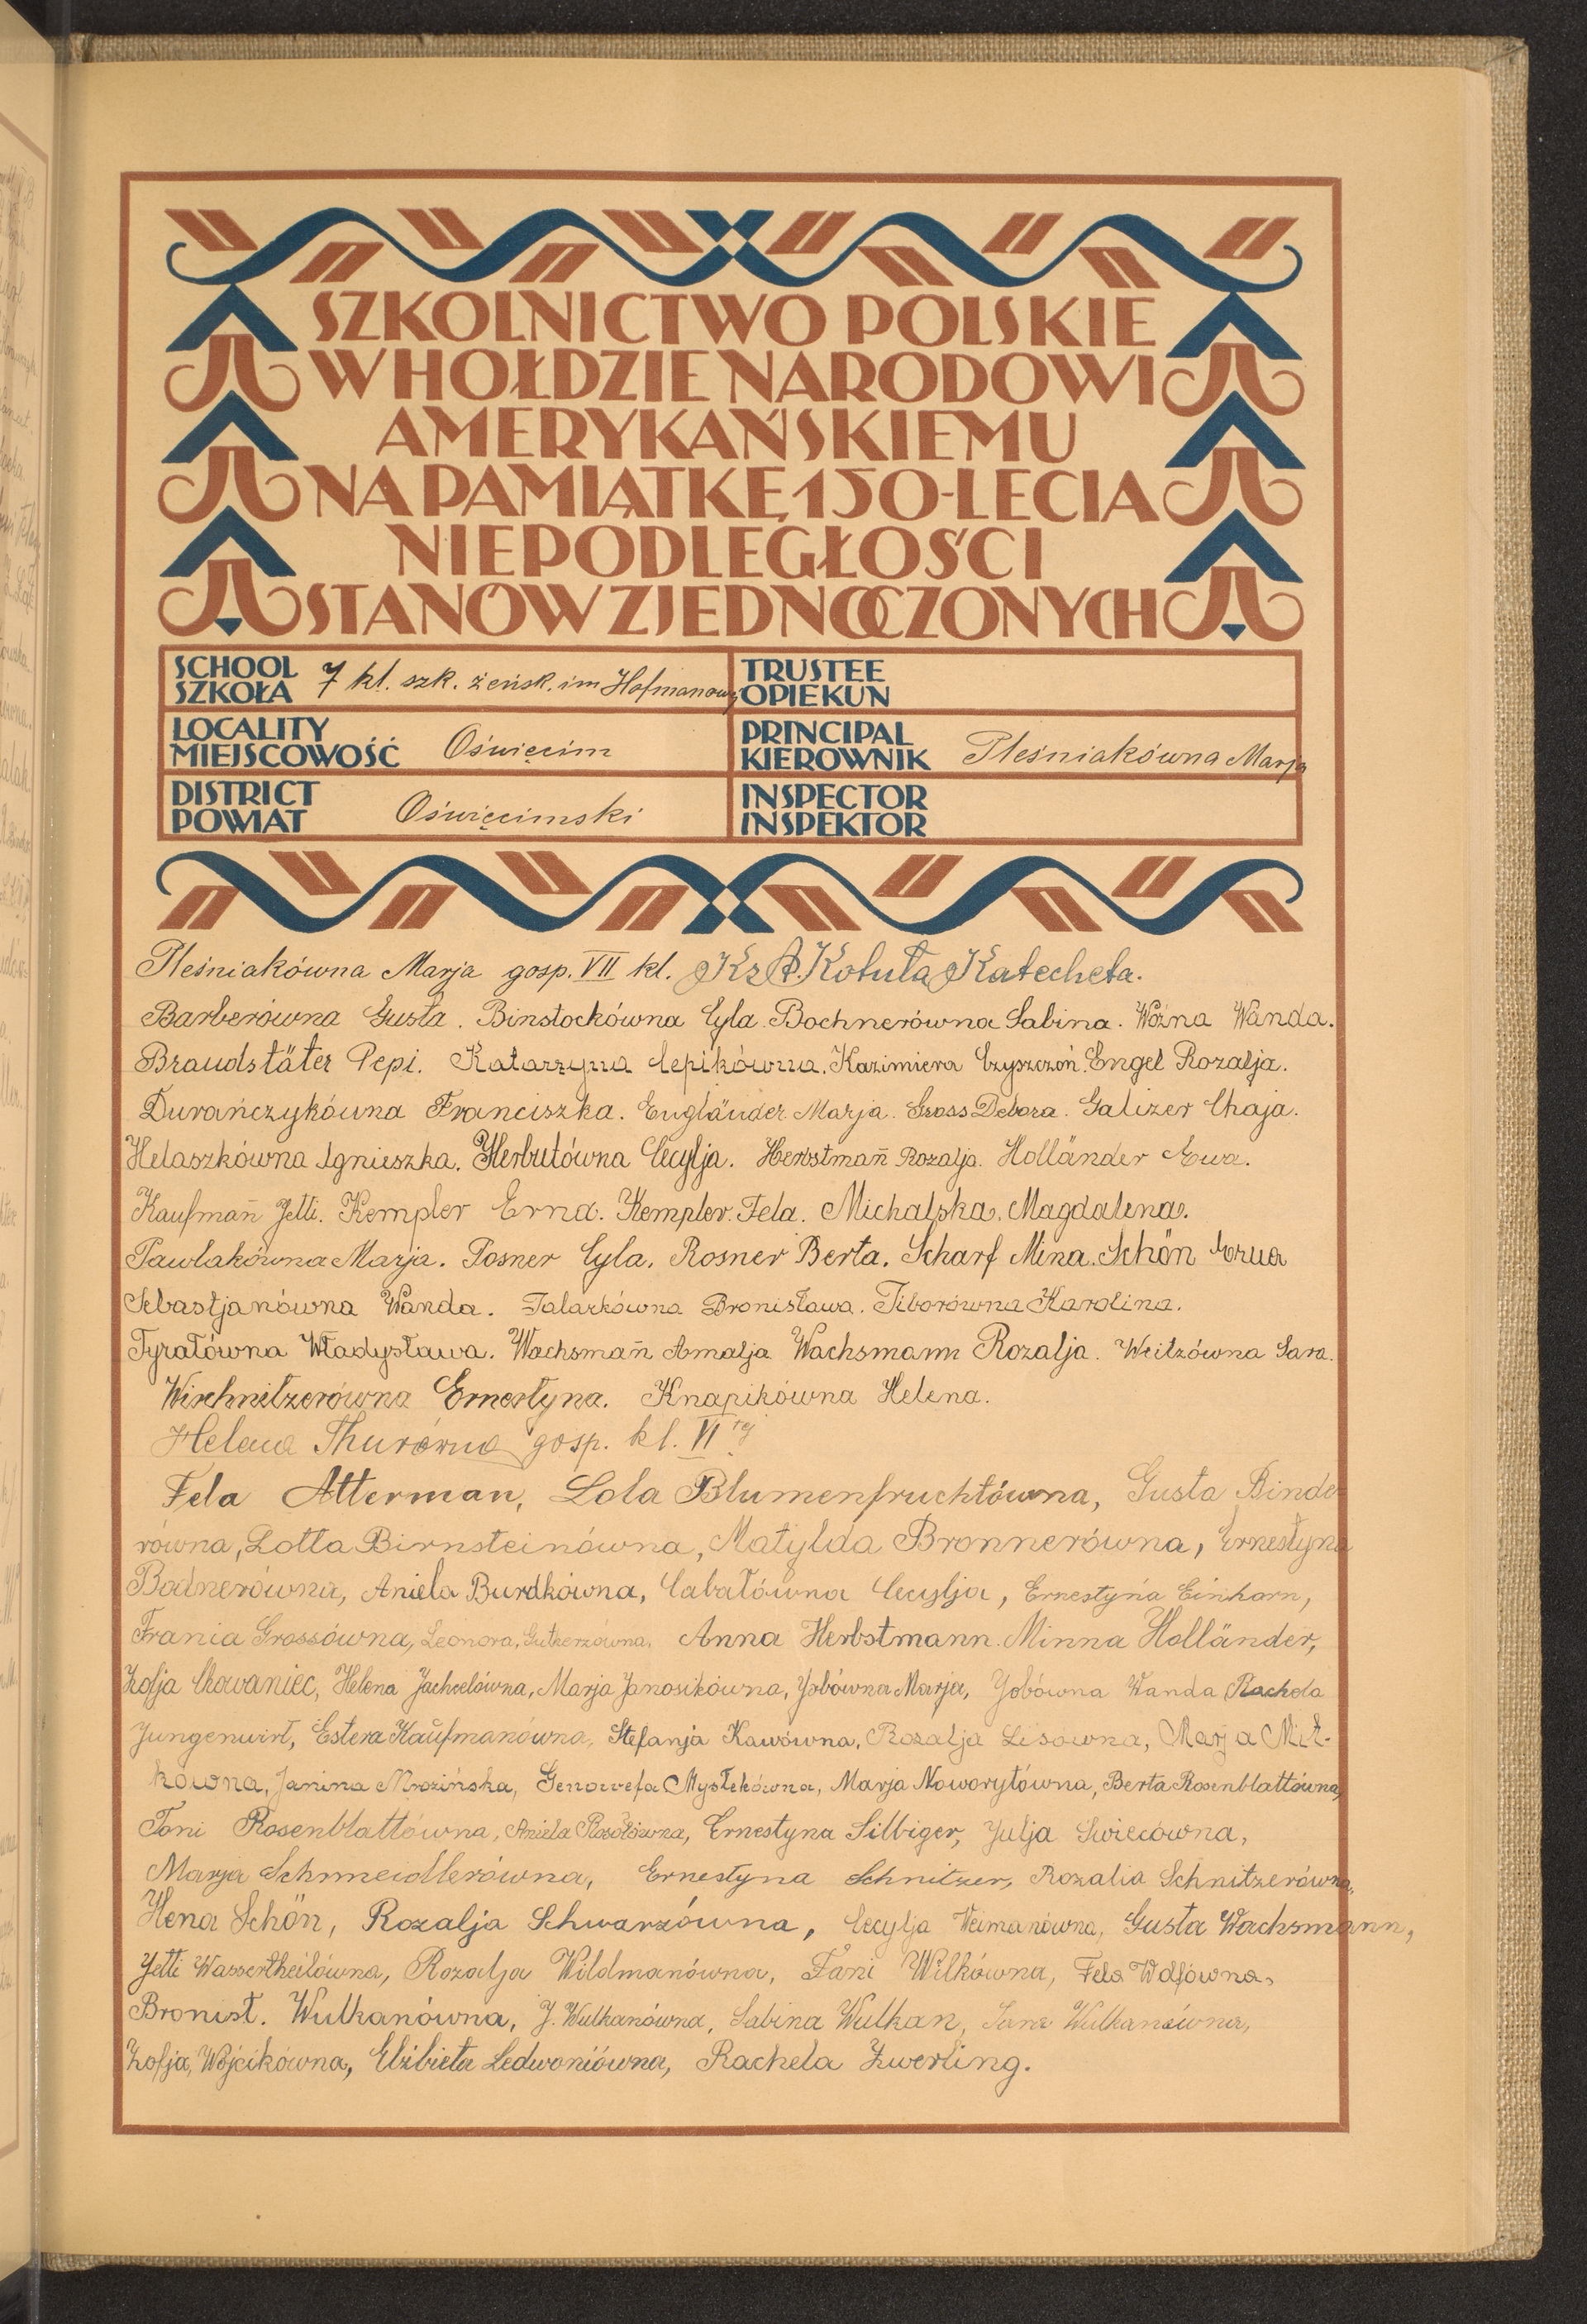 SZKOLNICTWO POLSKIE
W HOŁDZIE NARODOWI
AMERYKAŃSKIEMU
NA PAMIĄTKĘ 150-LECIA
NIEPODLEGŁOŚCI
STANÓW ZJEDNOCZONYCH
SCHOOL
SZKOŁA 7 kl. szk. żeńsk. im Hofmanowej
TRUSTEE
OPIEKUN
LOCALITY
MIEJSCOWOŚĆ Oświęcim
PRINCIPAL
KIEROWNIK Pleśniakówna Marja
DISTRICT
POWIAT Oświęcimski
INSPECTOR
INSPEKTOR
Pleśniakówna Marja gosp. VII kl. Kotuła Katecheta.
Barberówna Gusta. Binstockówna Cyla. Bochnerówna Sabina. Woźna Wanda.
Braudstäter Pepi. Katarzyna Cepikówna. Kazimiera Czyszczoń. Engel Rozalja.
Durańczykówna Franciszka. Engländer Marja. Gross Debora. Galizer Chaja.
Helaszkówna Agnieszka. Herbutówna Cecylja. Herbstmañ Rozalja. Holländer Ewa.
Kaufmañ Jetti. Kempler Erna. Kempler Fela. Michalska Magdalena.
Pawlakówna Marja. Posner Cyla. Rosner Berta. Scharf Mina. Schön Erna
Sebastjanówna Wanda. Talarkówna Bronisława. Tiborówna Karolina.
Tyratówna Władysława. Wachsmañ Amalja Wachsmann Rozalja. Weitzówna Sara.
Wirchnitzerówna Ernestyna. Knapikówna Helena.
Helena Thurówna gosp. kl. VI tej
Fela Atterman, Lola Blumenfruchtówna, Gusta Binde-
równa, Lotta Birnsteinówna, Matylda Bronnerówna, Ernestyna
Bodnerówna, Aniela Burdkówna, Cabałówna Cecylja, Ernestyna Einhorn,
Frania Grossówna, Leonora, Gutherzówna, Anna Herbstmann. Minna Holländer,
Zofja Chowaniec, Helena Jachcelówna, Marja Janosikówna, Jobówna Marja, Jobówna Wanda, Rachela
Jungenwirt, Estera Kaufmanówna, Stefanja Kawówna, Rozalja Lisówna, Marja Mit-
kówna, Janina Mrozińska, Genowefa Mysłekówna, Marja Noworytówna, Berta Rosenblattówna,
Toni Rosenblattówna, Aniela Rosołówna, Ernestyna Silbiger, Julja Swiecówna,
Marja Schmeidlerówna, Ernestyna Schnitzer, Rozalia Schnitzerówna,
Hena Schön, Rozalja Schwarzówna, Cecylja Weimanówna, Gusta Wachsmann,
Jetti Wassertheilówna, Rozalja Wildmanówna, Fani Wilkówna, Fela Wolfówna,
Bronisł. Wulkanówna, J. Wulkanówna, Sabina Wulkan, Sara Wulkanówna,
Zofja, Wójcikówna, Elżbieta Ledwoniówna, Rachela Zwerling.